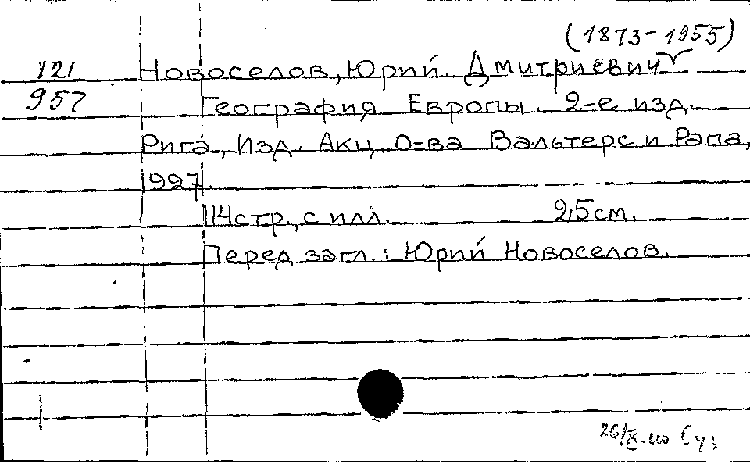 (1873-1955)
121 Новоселов, Юрий Дмитриевич
957 География Европы. 2-е изд.
Рига, Изд. Акц. О-ва Вальтерс и Рапа,
1927.
114 стр., с илл. 25 см.
Перед загл.: Юрий Новоселов.